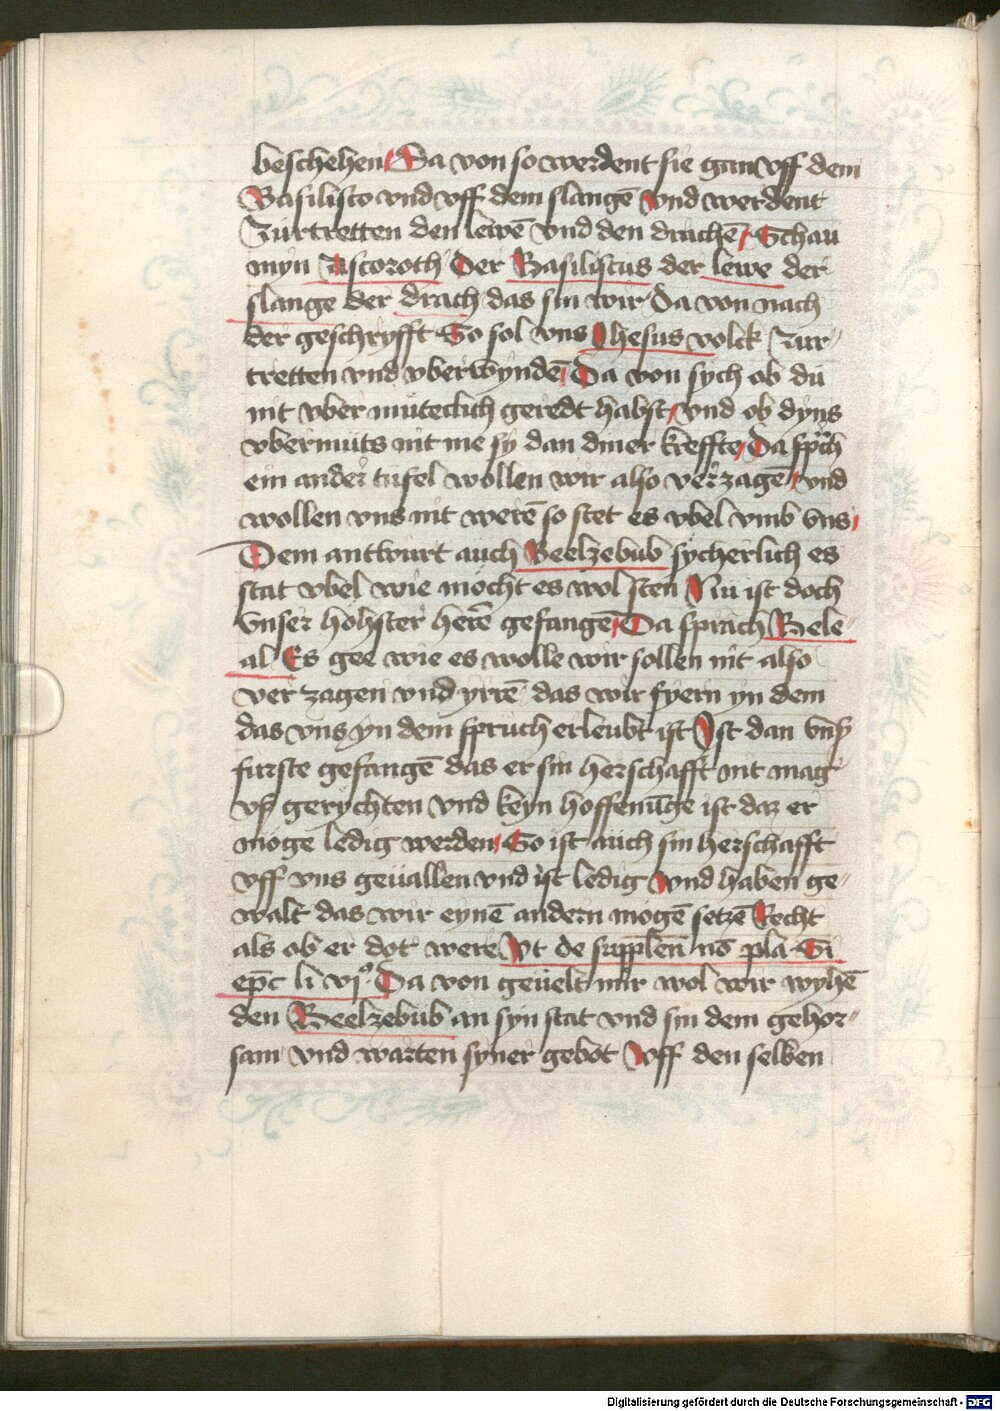 beschehen Da von so werdent sie gan vff dem
Basilisco vnd vff dem slangē vnd werdent
Zurtretten den lewē vnd den drachē Schau
myn Ascoroth Der Basiliscus der lewe der
slange der drach das sin wir Da von nach
der geschryfft So sol vns Jhesus volck Zur-
tretten vnd vberwyndē Da von sych ob du
nit vber muteclich geredt habst vnd ob dyns
vbermuts nit me sy dan diner kreffte Da sprch
ein ander tufel wollen wir also verzagē vnd
wollen vns nit werē so stet es vbel vmb vns
Dem antwurt auch Beelzebub sycherlich es
stat vbel wie mocht es wol sten Nu ist doch
vnser hohster herē gefangē Da sprach Bele-
al Es gee wie es wolle wir sollen nit also
verzagen vnd yrrē das wir fyern yn dem
das vns yn dem spruch erleubt ist Ist dan vnß
furste gefangē das er sin herschafft nit mag
vß gerychten vnd keyn hoffenūge ist daz er
moge ledig werden So ist auch sin herschafft
vff vns geuallen vnd ist ledig vnd haben ge-
walt das wir eynē andern mogē setzē Recht
als ob er dot were Vt de supplen nō pla Si
epc li vjo Da von geuelt mir wol wir wyhē
den Beelzebub an syn stat vnd sin dem gehor-
sam vnd warten syner gebot Vff den selben
Digitalisierung gefördert durch die Deutsche Forschungsgemeinschaft - DFG